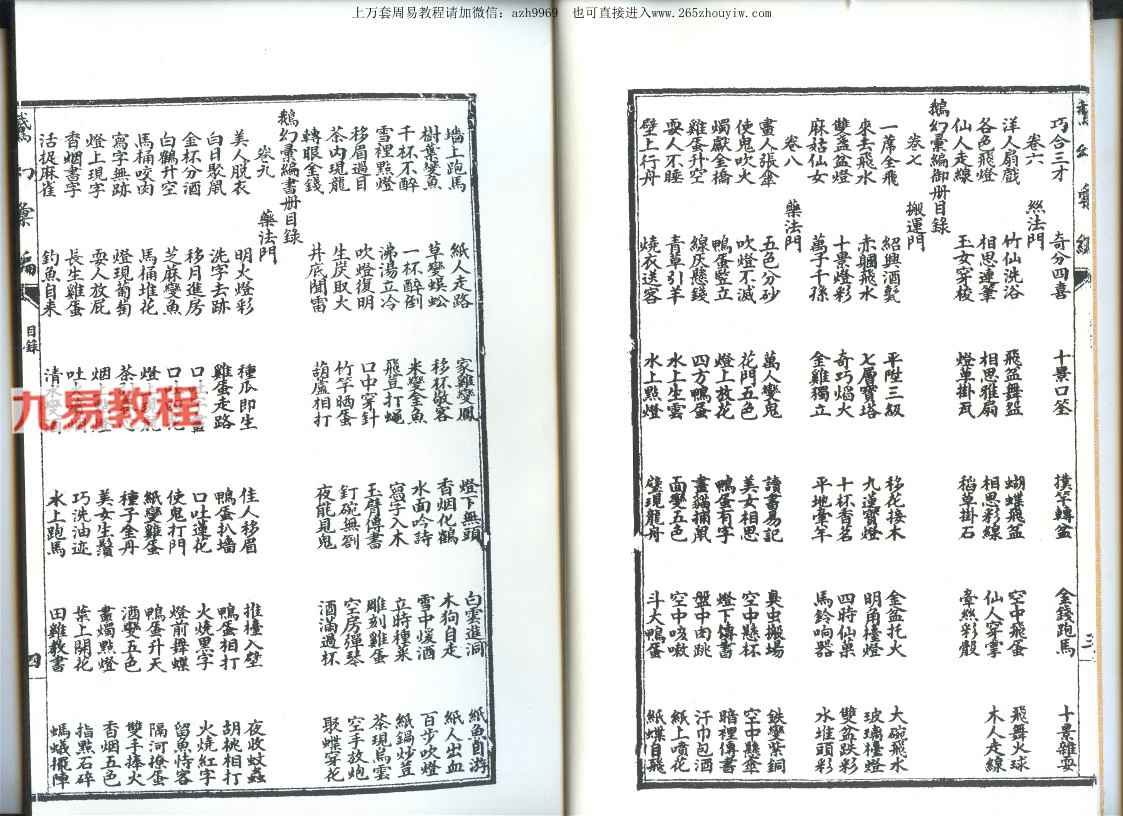 上万套周易教程请加微信：azh9969 也可直接进入www.265zhouyiw.com
巧合三才 奇分四喜 十景口筌 撲竿轉盆 金錢跑馬 十景雜耍
卷六 絲法門
洋人扇戲 竹仙洗浴 飛盆舞盆 蝴蝶飛盆 空中飛蛋 飛舞火球
各色飛燈 相思連筆 相思雅扇 相思彩線 仙人穿掌 木人走線
仙人走線 玉女穿梭 燈草掛瓦 稻草掛石 牽絲彩骰
鵝幻彙編御册目錄
卷七 搬運門
一蓆全飛 紹興酒甏 平陞三級 移花接木 金盆托火 大碗飛水
來去飛水 赤膊飛水 七層寶塔 九蓮寶燈 明角檯燈 玻璃檯燈
雙盞盆燈 十景燈彩 奇巧焰火 十杯香茗 四時仙菓 雙盆跌彩
麻姑仙女 萬子千孫 金雞獨立 平地拿年 馬鈴响器 水堆頭彩
卷八 藥法門
畫人張傘 五色分砂 萬人變鬼 讀書易記 臭虫搬場 鉄變紫銅
使鬼吹火 吹燈不滅 花門五色 美女相思 空中懸杯 空中懸傘
燭獻金橋 鴨蛋豎立 燈上放花 鴨蛋有字 燈下傳書 暗裡傳書
雞蛋升空 線灰懸錢 四方鴨蛋 畫貓捕鼠 盤中肉跳 汗巾包酒
耍人不睡 青草引羊 水上生雲 面變五色 空中咳嗽 紙上噴花
壁上行舟 燒衣送客 水上點燈 壁現龍舟 斗大鴨蛋 紙蝶自飛
三
墙上跑馬 紙人走路 家雞變鳳 燈下無頭 白雲進洞 紙魚自游
樹葉變魚 草變蜈蚣 移杯敬客 香烟化鶴 木狗自走 紙人出血
千杯不醉 一杯醉倒 米變金魚 水面吟詩 雪中煖酒 百步吹燈
雪裡點燈 沸湯立冷 飛豆打蠅 寫字入木 立時種菜 紙鍋炒荳
移眉過目 吹燈復明 口中穿針 玉臂傳書 雕刻雞蛋 茶現烏雲
茶內現龍 生灰取火 竹竿晒蛋 釘碗無劄 空房彈琴 空手放炮
轉眼金錢 井底聞雷 葫蘆相打 夜能見鬼 酒滿過杯 聚蝶穿花
鵝幻彙編書册目錄
卷九 藥法門
美人脫衣 明火燈彩 種瓜即生 佳人移眉 推檯入壁 夜收蚊蟲
白日聚鼠 洗字去跡 雞蛋走路 鴨蛋扒墙 鴨蛋相打 胡桃相打
金杯分酒 移月進房 口吐蓮花 火燒黑字 火燒紅字
白鶴升空 芝麻變魚 使鬼打門 燈前舞蝶 留魚待客
馬桶咬肉 馬桶堆花 紙變雞蛋 鴨蛋升天 隔河撩蛋
寫字無跡 燈現葡萄 種子金丹 酒變五色 雙手捧火
燈上現字 耍人放屁 美女生鬚 畫燭點燈 香烟五色
香烟書字 長生雞蛋 巧洗油迹 葉上開花 指點石碎
活捉麻雀 釣魚自來 水上跑馬 田雞教書 螞蟻擺陣
目錄
四
九易教程